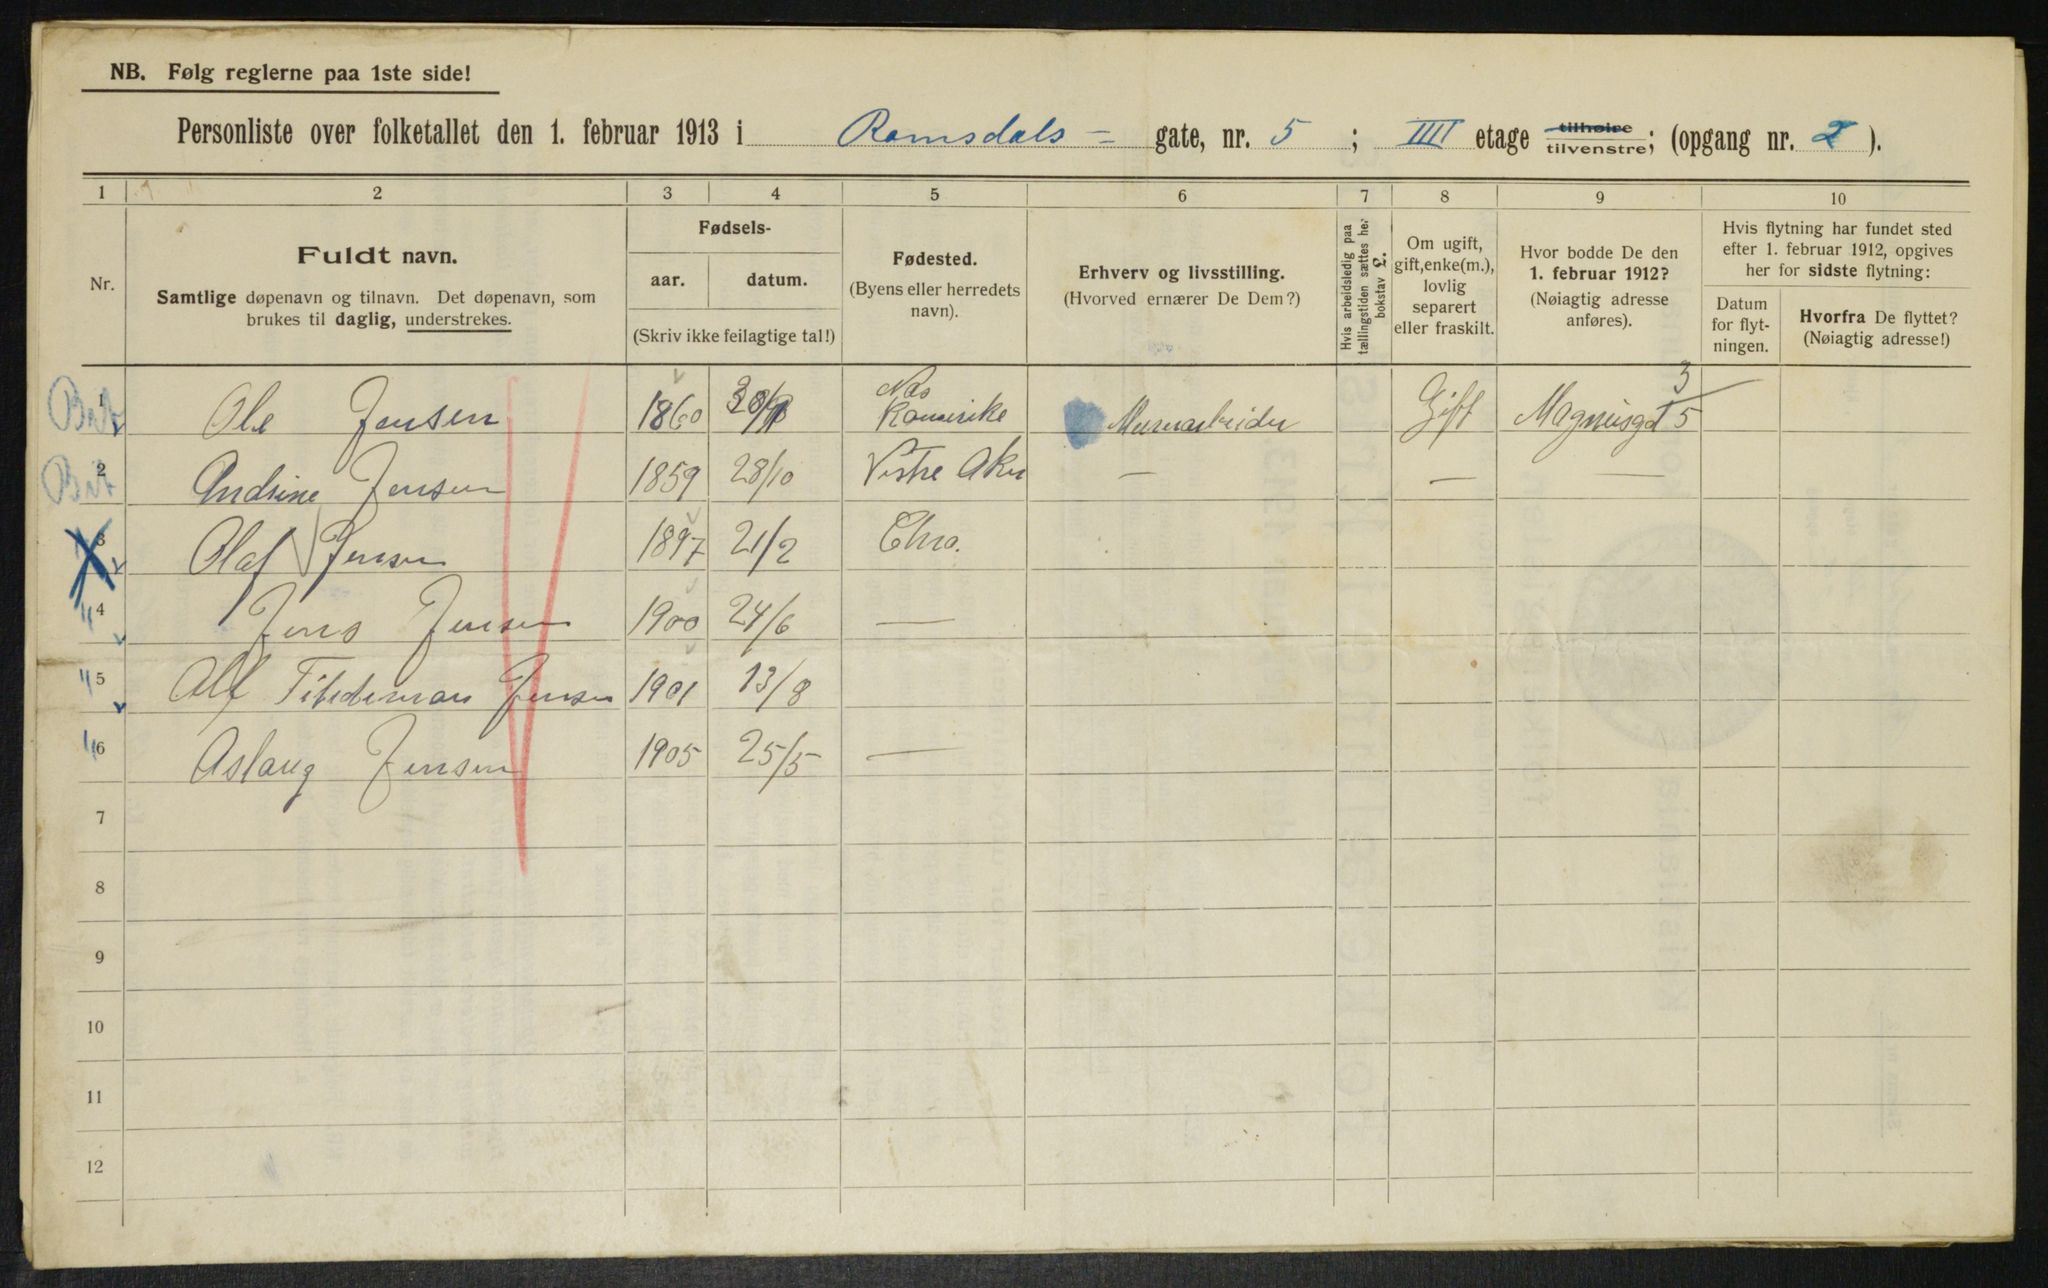 NB. Følg reglerne paa 1ste side!
Personliste over folketallet den 1. februar 1913 i Romsdals- gate, nr. 5 ; IIII etage tilhøire tilvenstre; (opgang nr. 2 ).
1 2 3 4 5 6 7 8 9 10
Nr.
Fuldt navn.
Samtlige døpenavn og tilnavn. Det døpenavn, som
brukes til daglig, understrekes.
Fødsels-
aar. datum.
(Skriv ikke feilagtige tal!)
Fødested.
(Byens eller herredets
navn).
Erhverv og livsstilling.
(Hvorved ernærer De Dem?)
Hvis arbeidsledig paa
tællingstiden sættes her
bokstav L.
Om ugift,
gift, enke(m.),
lovlig
separert
eller fraskilt.
Hvor bodde De den
1. februar 1912?
(Nøiagtig adresse
anføres).
Hvis flytning har fundet sted
efter 1. februar 1912, opgives
her for sidste flytning:
Datum
for flyt-
ningen.
Hvorfra De flyttet?
(Nøiagtig adresse!)
1 Ole Jensen 1860 Romerike Murarbeider Gift Magnusgt 3/5
2 Andrine Jensen 1859 28/10 Vestre Aker — — —
3 Olaf Jensen 1897 21/2 Chra.
4 Jens Jensen 1900 24/6 —
5 Alf Jensen 1901 13/8
6 Aslaug Jensen 1905 25/5 —
7
8
9
10
11
12